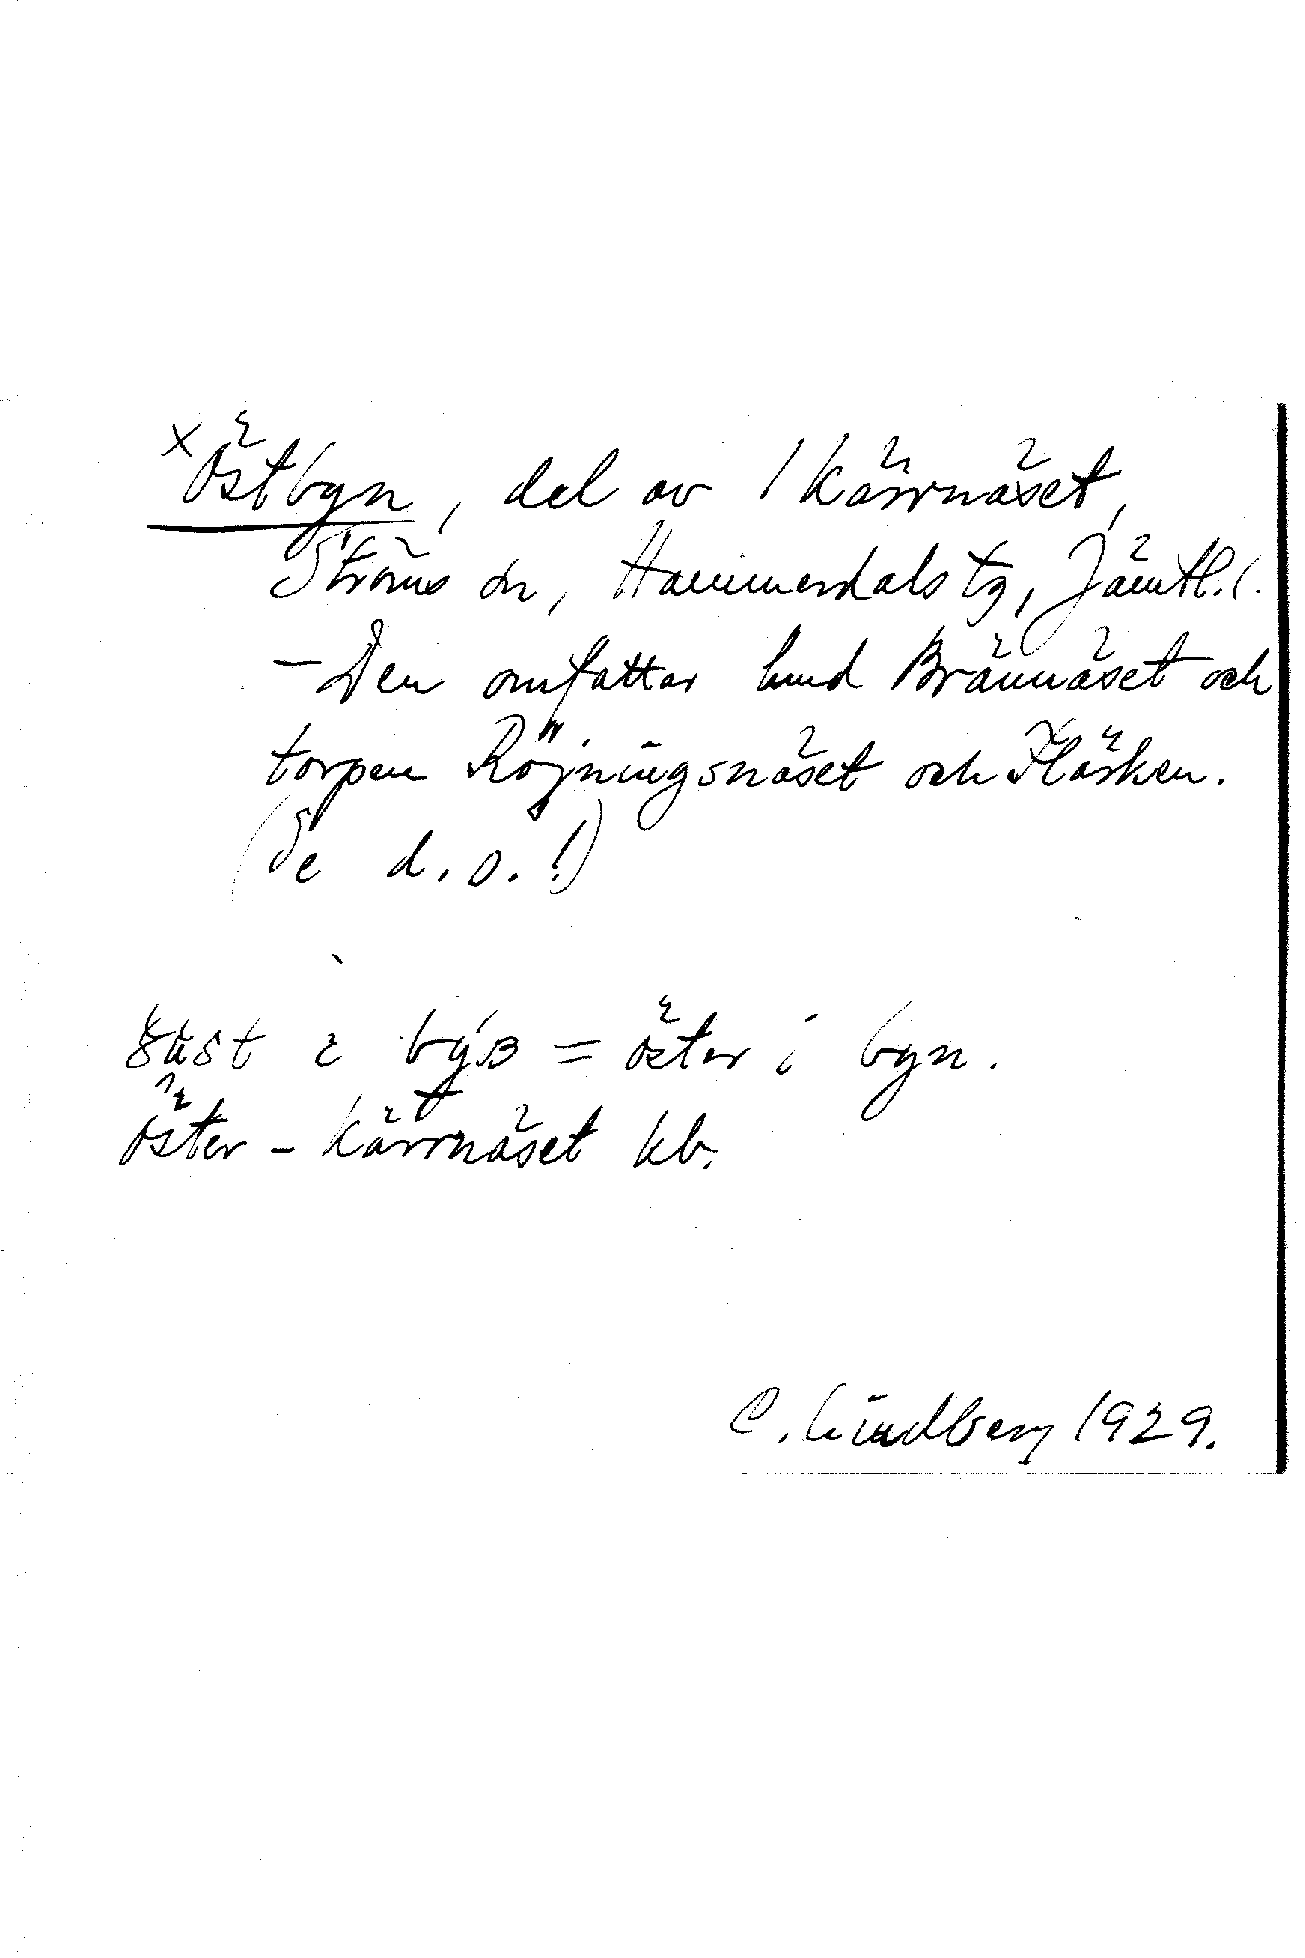 x Östbyn, del av 1 Kärrnäset,
Ströms sn, Hammerdals tg, Jämtl. l.
- Den omfattar hmd Brännäset och
torpen Röjningsnäset och Flärken.
(Se d. o.!)
i = öster i byn.
Öster-Kärrnäset kb.
C. Lindberg 1929.